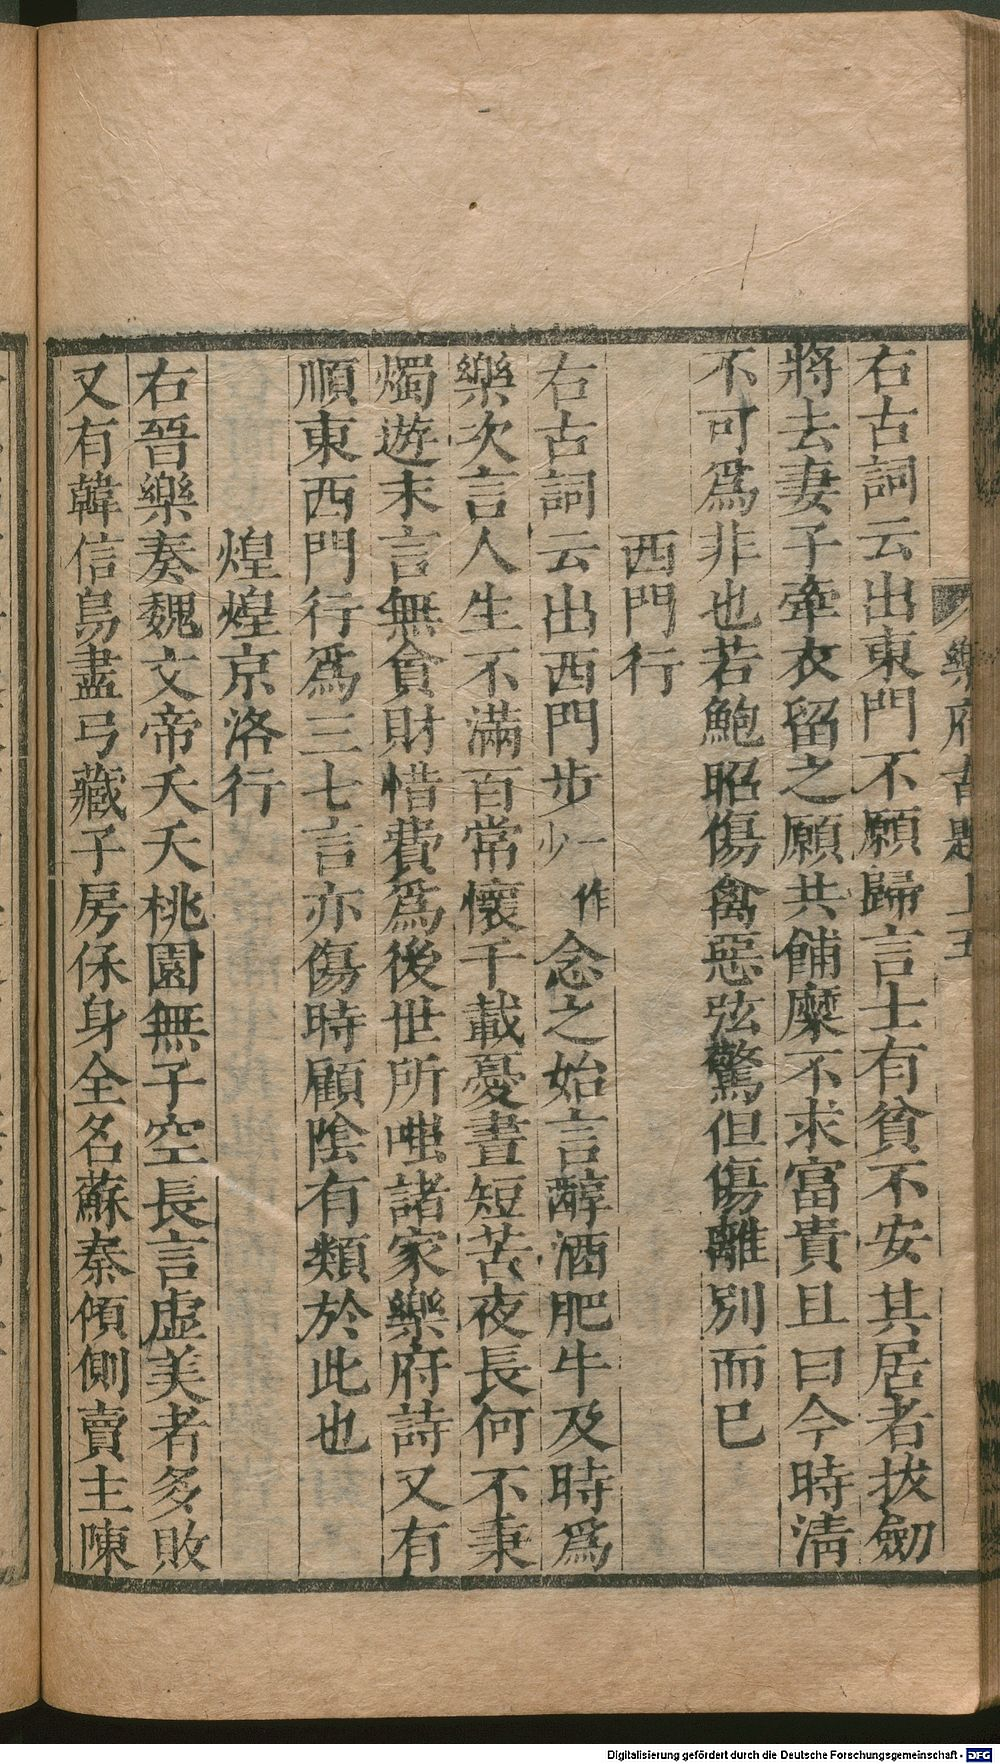 樂府古題上五
右古詞云出東門不願歸言士有貧不安其居者拔劒
將去妻子牽衣留之願共餔糜不求富貴且曰今時淸
不可爲非也若鮑昭傷禽惡弦驚但傷離别而已
西門行
右古詞云出西門步一作少念之始言醇酒肥牛及時爲
樂次言人生不滿百常懷千載憂晝短苦夜長何不秉
燭遊末言無貪財惜費爲後世所嗤諸家樂府詩又有
順東西門行爲三七言亦傷時顧陰有類於此也
煌煌京洛行
右晉樂奏魏文帝夭夭桃園無子空長言虛美者多敗
又有韓信鳥盡弓藏子房保身全名蘇秦傾側賣主陳
Digitalisierung gefördert durch die Deutsche Forschungsgemeinschaft - DFG